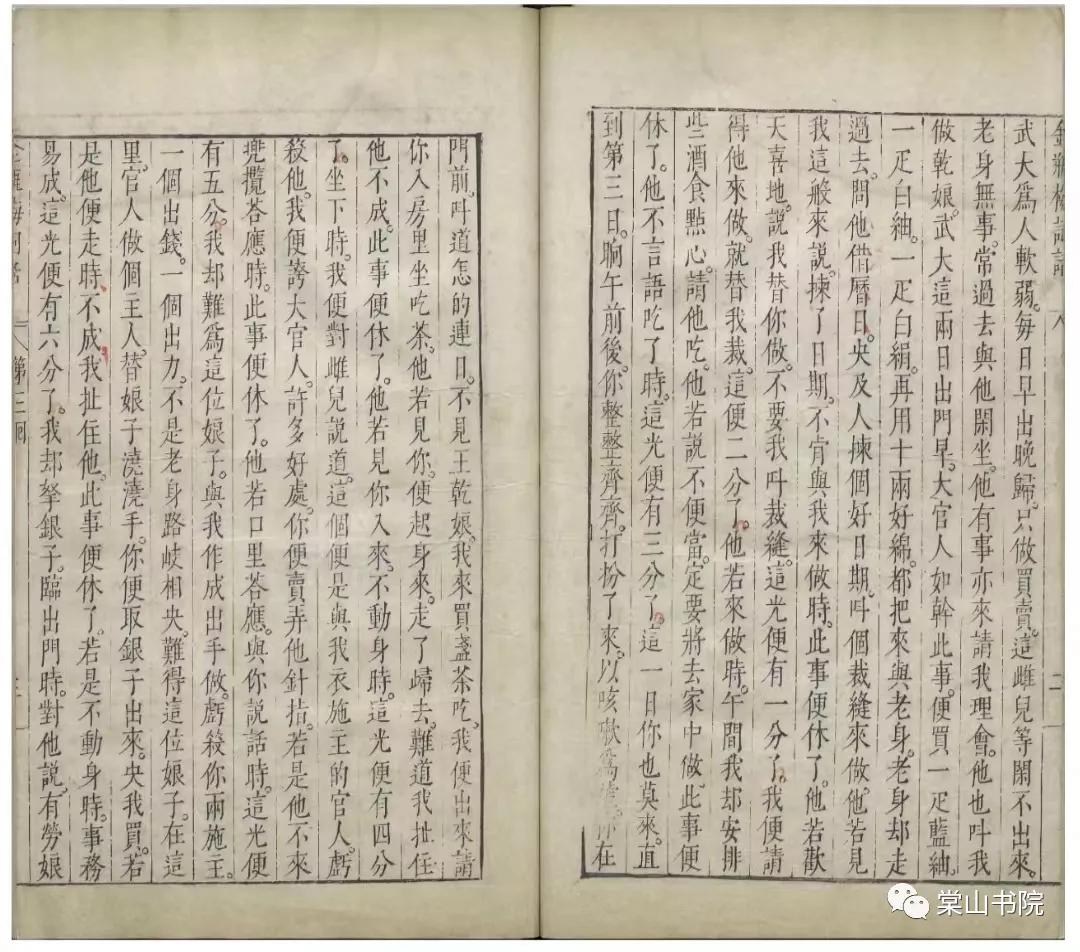 武大爲人軟弱。每日早出晚歸。只做買賣。這雌兒等閑不出來。
老身無事。常過去與他閑坐。他有事亦來請我理會。他也呌我
做乾娘。武大這兩日出門早。大官人如幹此事。便買一疋藍紬。
一疋白紬。一疋白絹。再用十兩好綿。都把來與老身。老身却走
過去。問他借曆日。央及人揀個好日期。呌個裁縫來做。他若見
我這般來說。揀了日期。不肯與我來做時。此事便休了。他若歡
天喜地。說我替你做。不要我呌裁縫。這光便有一分了。我便請
得他來做。就替我裁。這便二分了。他若來做時。午間我却安排
些酒食點心。請他吃。他若說不便當。定要將去家中做。此事便
休了。他不言語吃了時。這光便有三分了。這一日你也莫來。直
到第三日。晌午前後。你整整齊齊。打扮了來。以咳嗽爲
在
門前。呌道怎的連日。不見王乾娘。我來買盞茶吃。我便出來請
你入房里坐吃茶。他若見你。便起身來。走了歸去。難道我扯住
他不成。此事便休了。他若見你入來。不動身時。這光便有四分
了。坐下時。我便對雌兒說道。這個便是與我衣施主的官人。虧
殺他。我便誇大官人。許多好處。你便賣弄他針指。若是他不來
兠攬荅應時。此事便休了。他若口里荅應。與你說話時。這光便
有五分。我却難爲這位娘子。與我作成出手做。虧殺你兩施主。
一個出錢。一個出力。不是老身路岐相央。難得這位娘子。在這
里。官人做個主人。替娘子澆澆手。你便取銀子出來。央我買。若
是他便走時。不成我扯住他。此事便休了。若是不動身時。事務
易成。這光便有六分了。我却拏銀子。臨出門時。對他說。有勞娘
第三囬
棠山书院